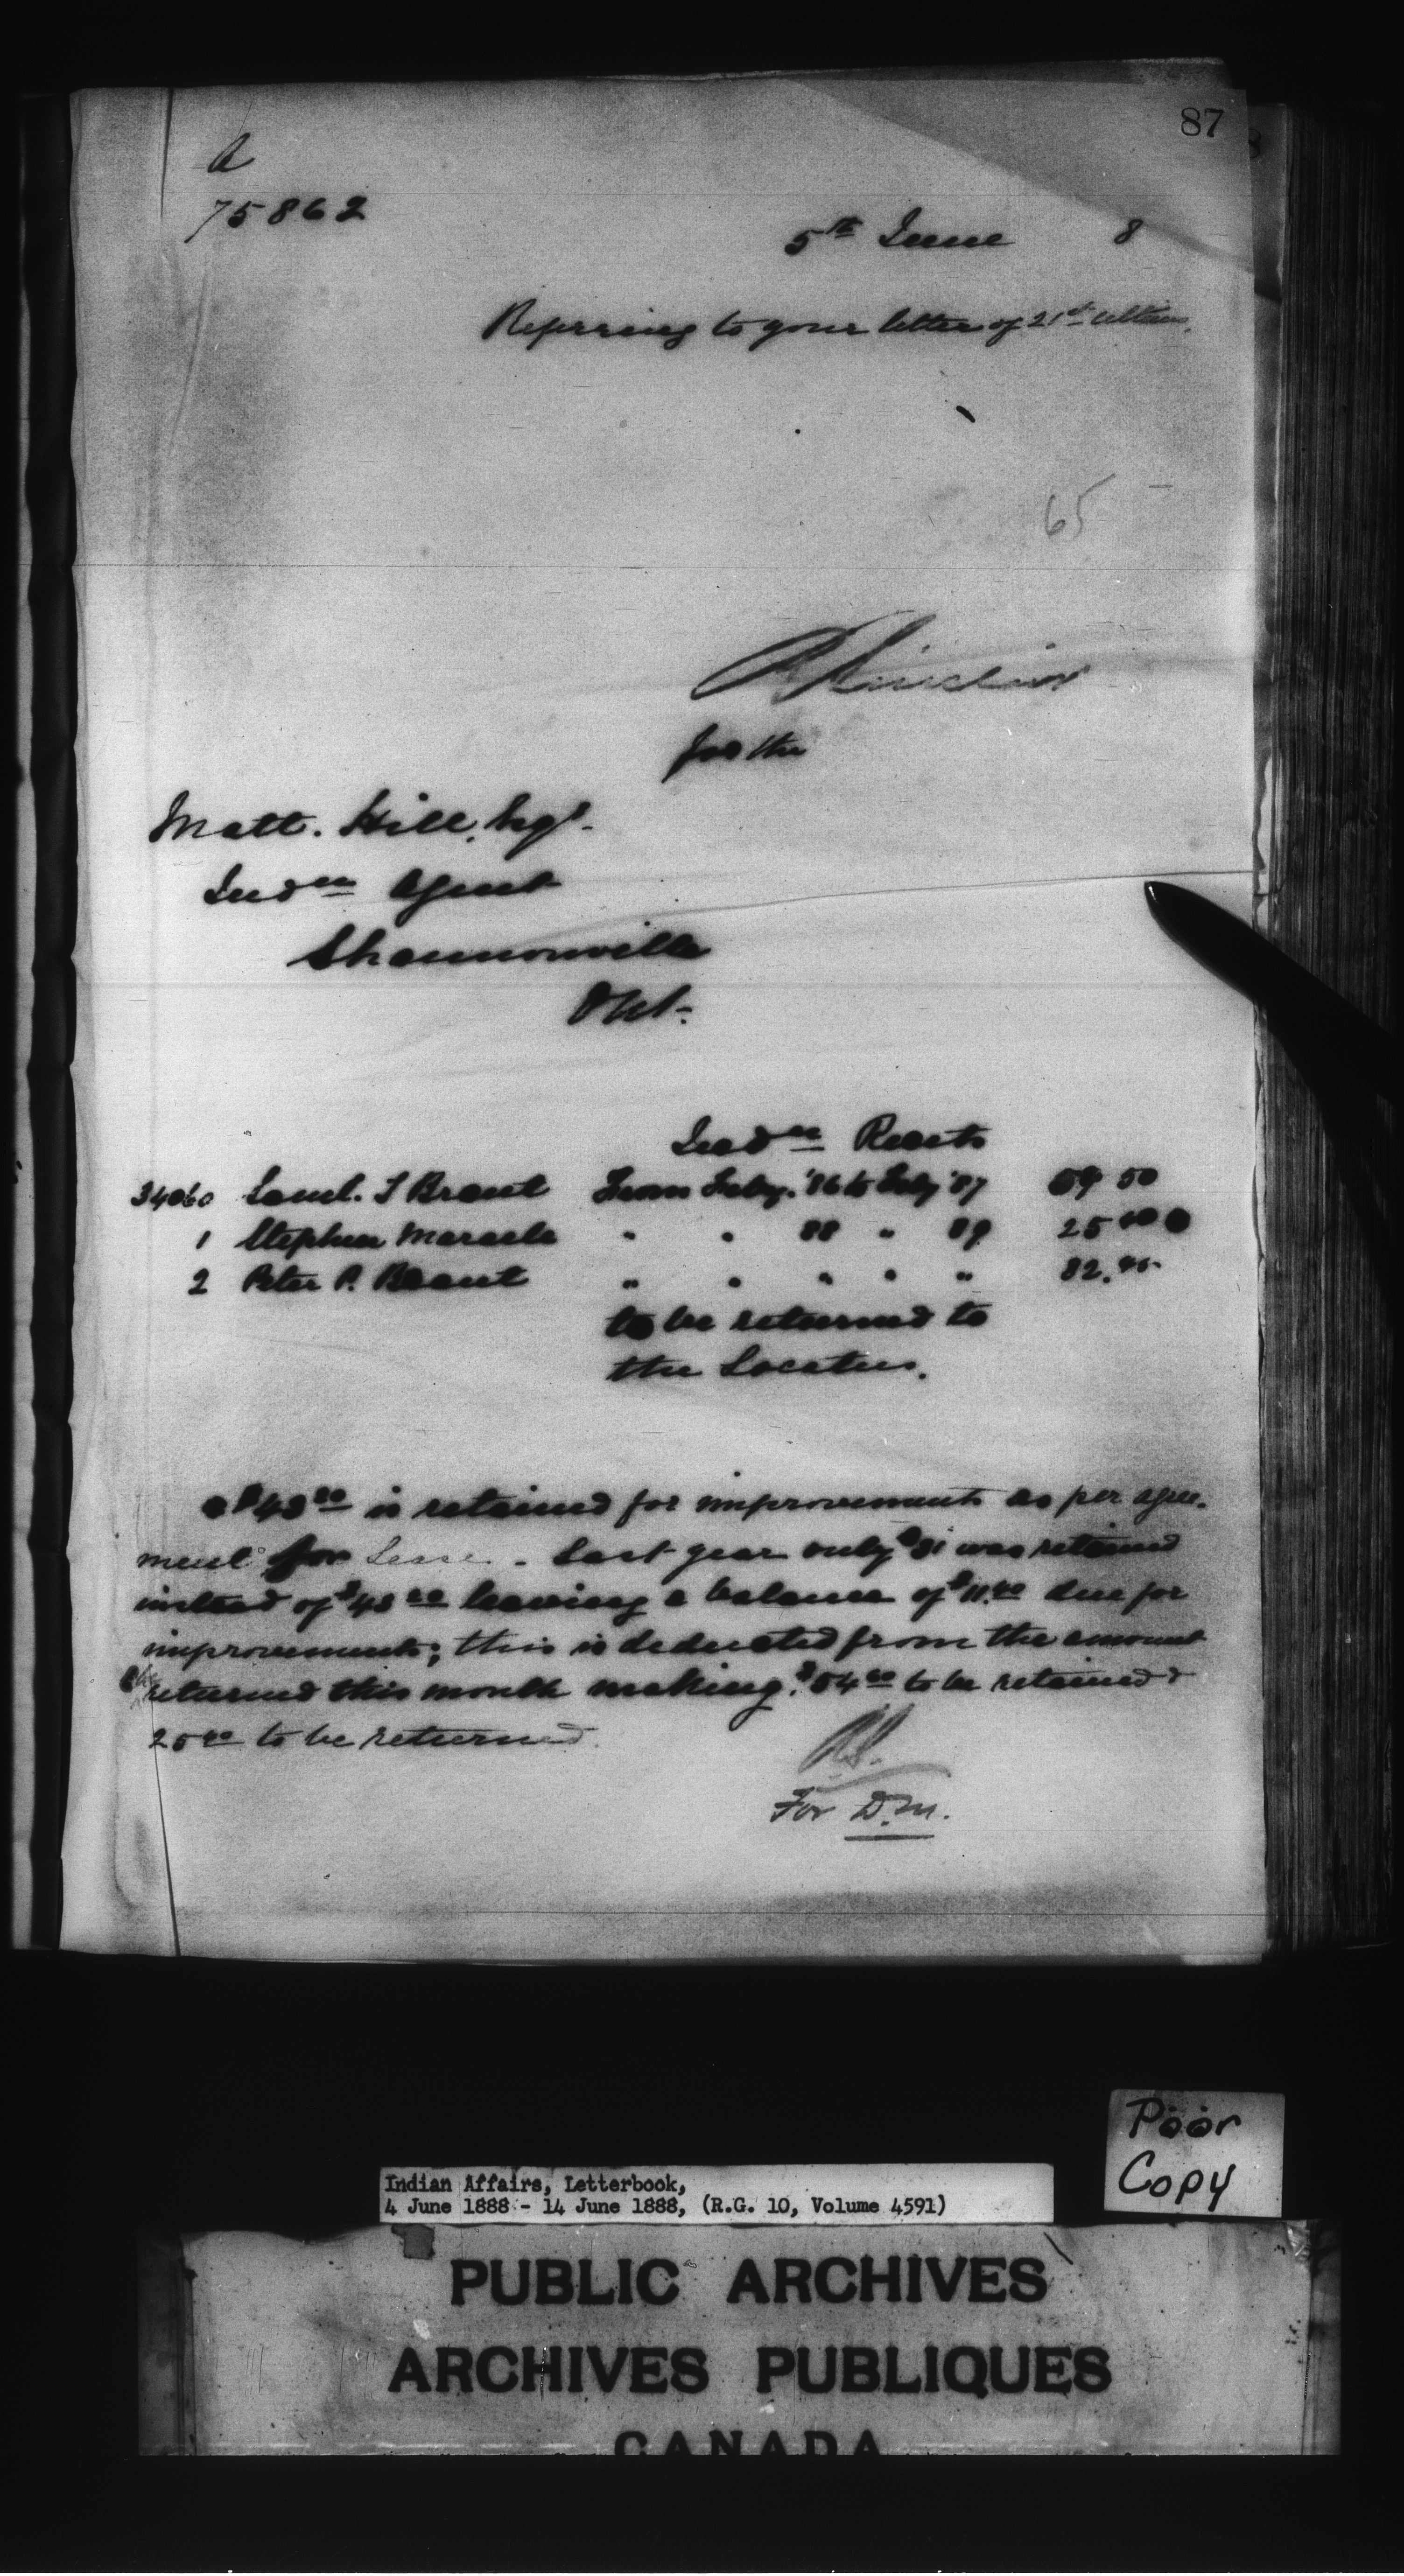 87
A
75862
5th June 8
Referring to your letter of 21st ultimo,
65
R Sinclair
for the
Matt. Hill, Esqr.
Indn Agent
Shannonville
Ont.
Indn Rents
34060 Saml. J Brant From Feby. '86 to Feby '87 59 50
1 Stephen Maracle " " 88 " 89 25 40
2 Peter P. Brant " " " " " 82.
to be returned to
the Locatees.
$43 20 is retained for improvements as per agree-
ment for Lease. Last year only $31 was retained
instead of $43 20 leaving a balance of $11.40 due for
improvements; this is deducted from the amount
returned this month making $54 60 to be retained &
25 40 to be returned.
R.S.
For D.M.
Poor
Copy
Indian Affairs, Letterbook,
4 June 1888 - 14 June 1888, (R.G. 10, Volume 4591)
PUBLIC ARCHIVES
ARCHIVES PUBLIQUES
CANADA